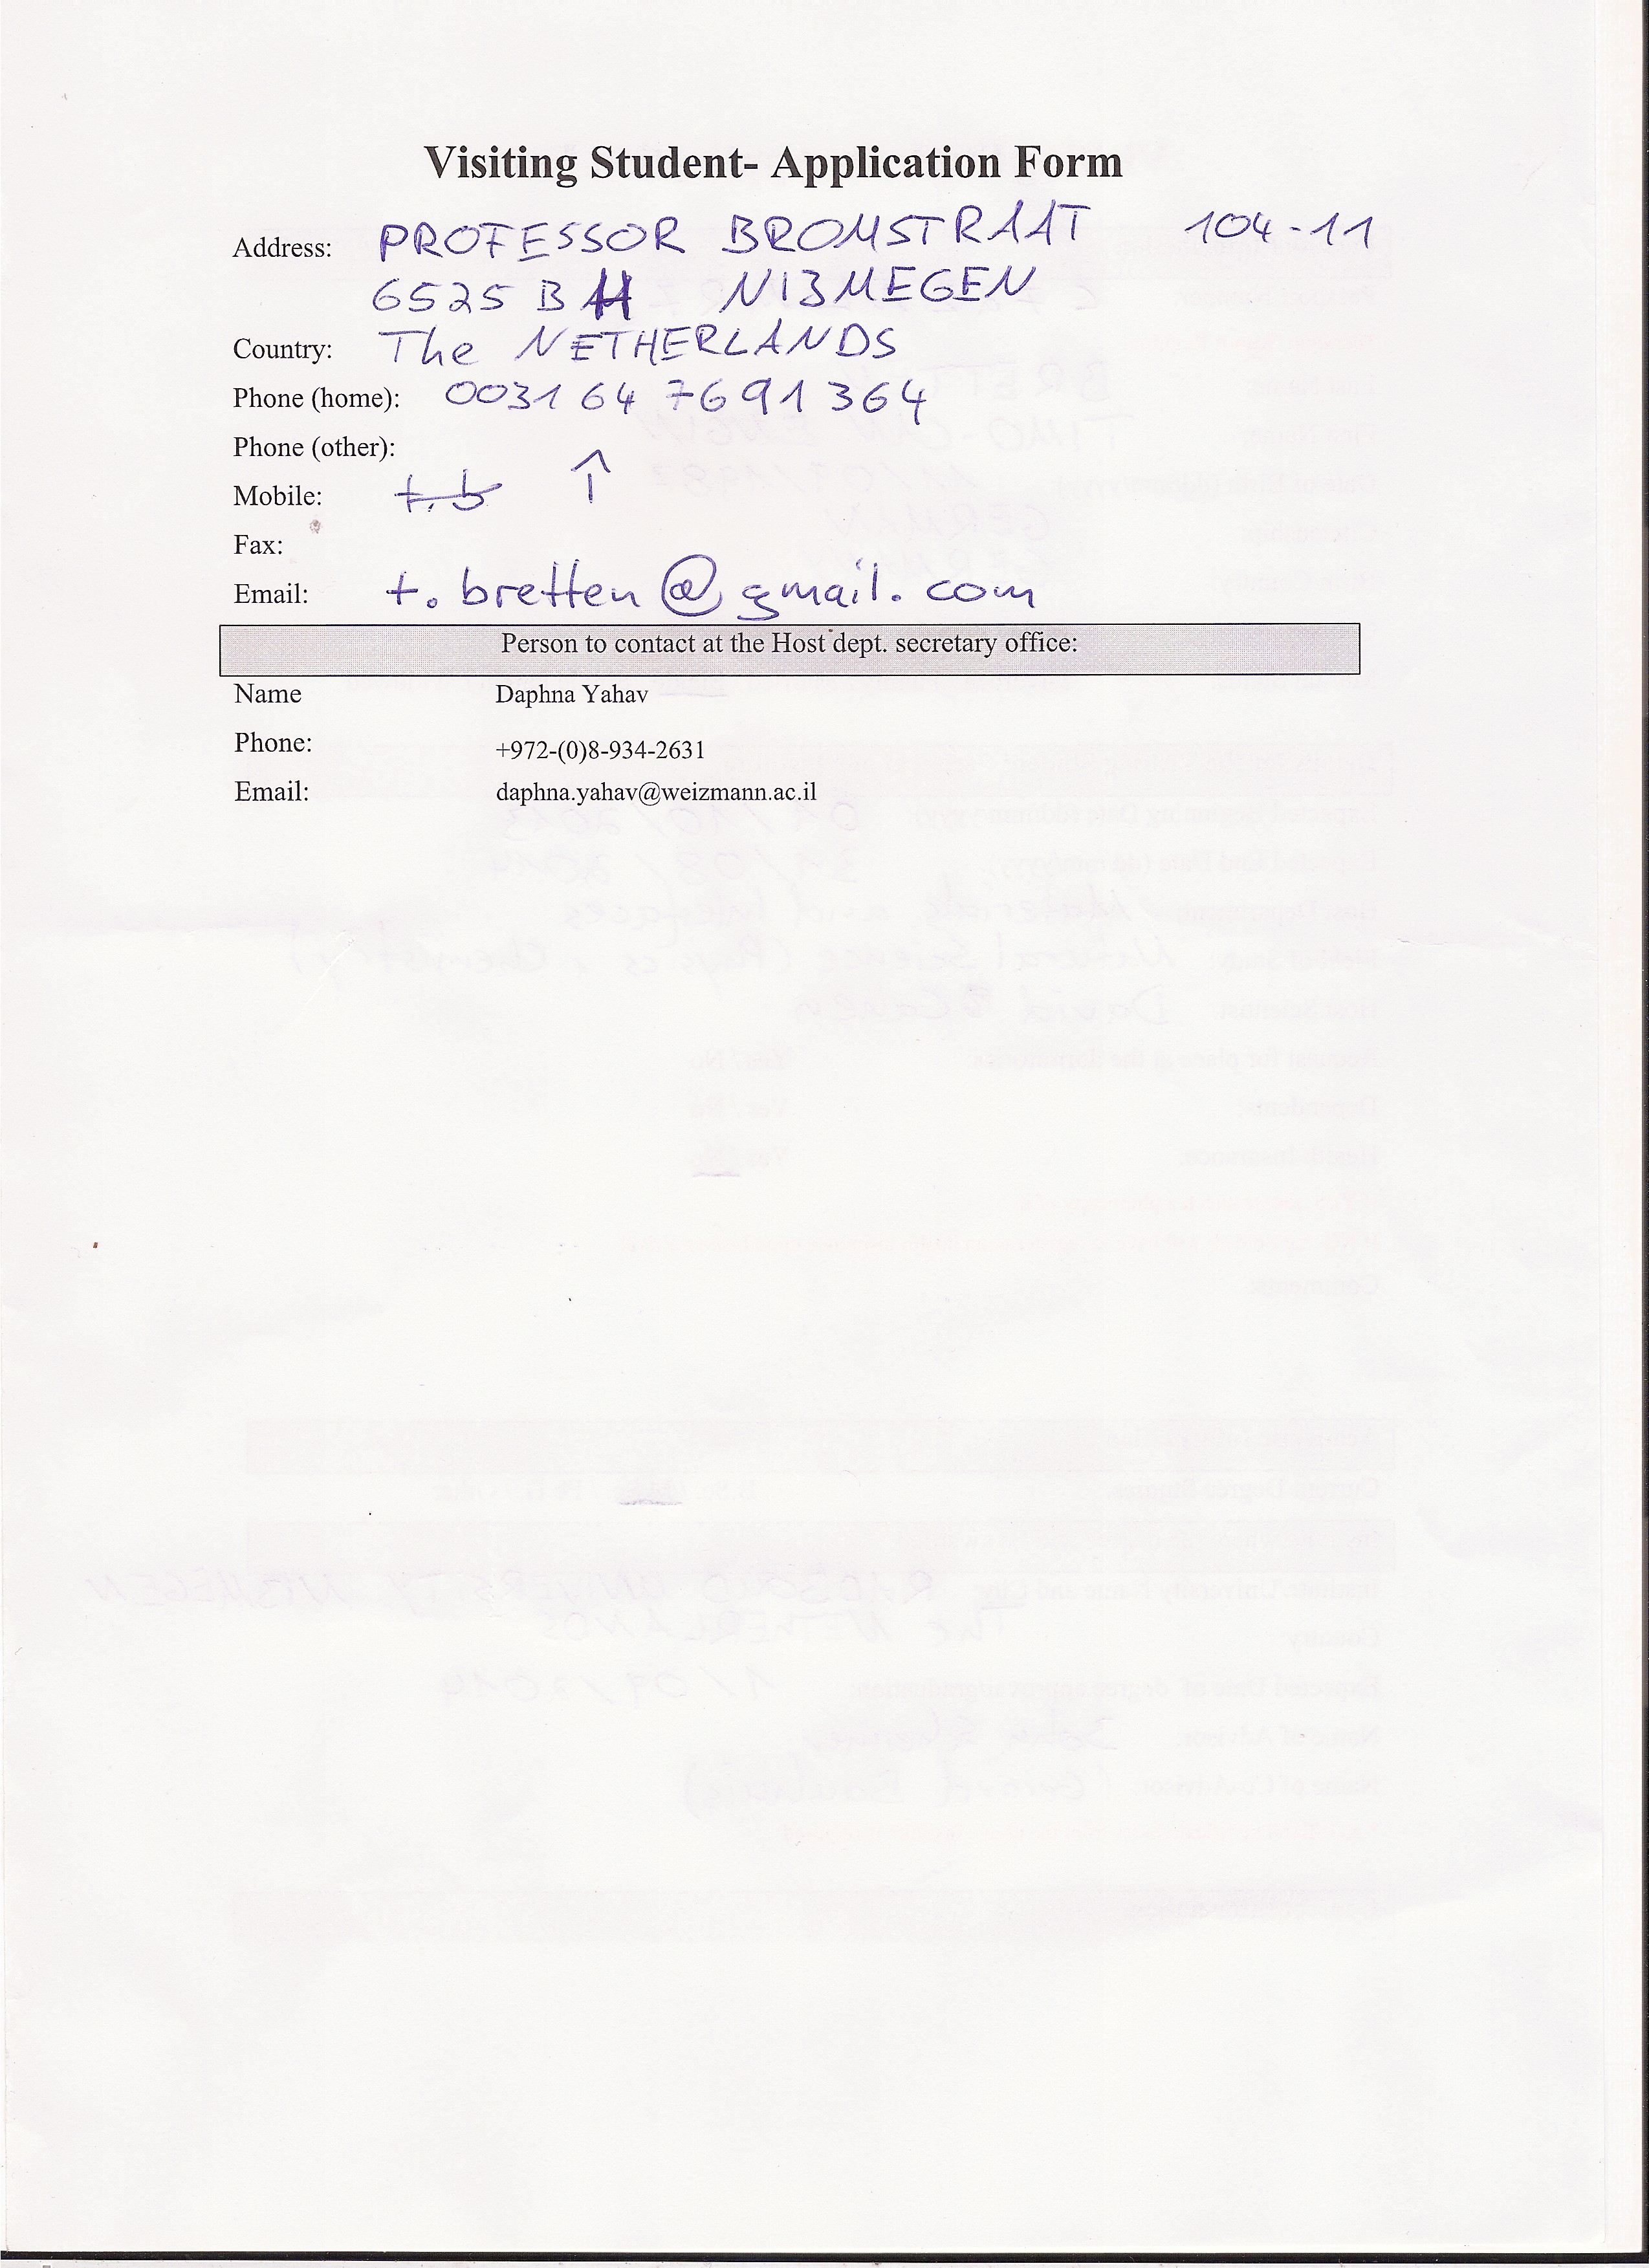 Visiting Student- Application Form
Address: PROFESSOR BROMSTRAAT 104-11
6525 BH NIJMEGEN
Country: The NETHERLANDS
Phone (home): 0031 64 7691364
Phone (other):
Mobile: t.b ↑
Fax:
Email: t.bretten@gmail.com
Person to contact at the Host dept. secretary office:
Name Daphna Yahav
Phone: +972-(0)8-934-2631
Email: daphna.yahav@weizmann.ac.il